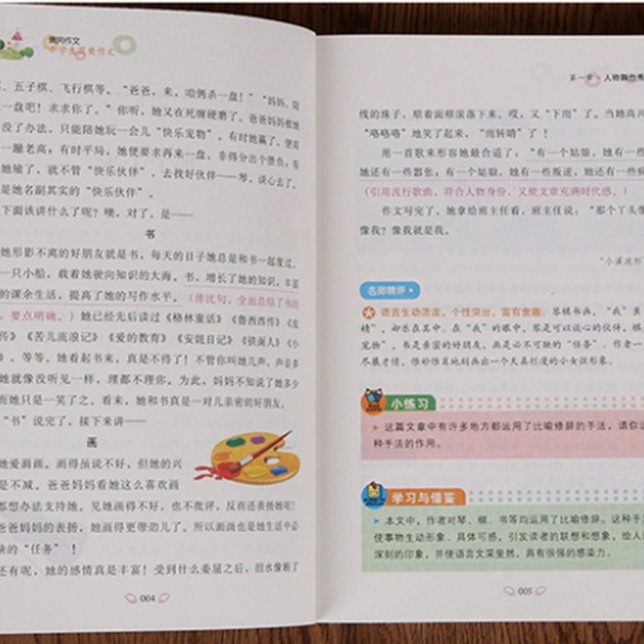 黄冈作文
小学生获奖作文
、五子棋、飞行棋等。“爸爸，来，咱俩杀一盘！”“妈妈，陪
一盘吧！求求你了。”你听，她又在死缠硬磨了。爸爸妈妈被她
没了办法，只能陪她玩一会儿“快乐宠物”。有时她赢了，便高
一蹦老高；有时平局，她便要求再来一盘，非得分出个胜负；有
她输了，就不管“快乐伙伴”，去找好伙伴——琴，谈心去了。
是她名副其实的“快乐伙伴”。
下面该讲什么了呢？噢，对了，是——
书
她形影不离的好朋友就是书，每天的日子她总是和书一起度过。
一只小船，载着她驶向知识的大海。书，增长了她的知识，丰富
的课余生活，提高了她的写作水平。（排比句，全面总结了书的
，要点明确。）她已经先后读过《格林童话》《鲁西西传》《皮
传》《苦儿流浪记》《爱的教育》《安妮日记》《铁面人》《小
》，等等。她看起书来，真是不得了！不管你叫她几声，声音多
她就像没听见一样，理都不理你。为此，妈妈不知说了她多少
而她只是一笑了之。看来，她和书真是一对儿亲密的好朋友。
“书”说完了，接下来讲——
画
她爱画画。画得虽说不好，但她的兴
是不减。爸爸妈妈看她这么喜欢画
都想办法支持她。见她画得不好，也不批评，反而还表扬她呢！
爸爸妈妈的表扬，她画得更带劲儿了。所以画画也是她生活中必
快的“任务”！
还有呢，她的感情真是丰富！受到什么委屈之后，泪水像断了
004
第一章
人物舞台秀
线的珠子，顺着面颊滚落下来。哎，又“下雨”了。当她高兴
“咯咯咯”地笑了起来，“雨转晴”了！
用一首歌来形容她最合适了：“有一个姑娘，她有一些
她还有一些嚣张，有一个姑娘，她有一些叛逆，她还有一些疯
（引用流行歌曲，符合人物身份，又使文章充满时代感。）
作文写完了，她拿给班主任看，班主任说：“那个丫头像
像我？像我就是我。
“小溪流杯”
名师精评
语言生动活泼，个性突出，富有童趣。琴棋书画，“我”具
，却乐在其中。在“我”的眼中，琴是可以谈心的伙伴，棋
宠物”。书是亲密的好朋友，画是必不可缺的“任务”。作者一
尽展才情，惟妙惟肖地刻画出一个天真烂漫的小女孩形象。
小练习
➤ 这篇文章中有许多地方都运用了比喻修辞的手法，请你说
种手法的作用。
学习与借鉴
➤ 本文中，作者对琴、棋、书等均运用了比喻修辞。这种手
使事物生动形象、具体可感，引发读者的联想和想象，给人
深刻的印象，并使语言文采斐然，具有很强的感染力。
005